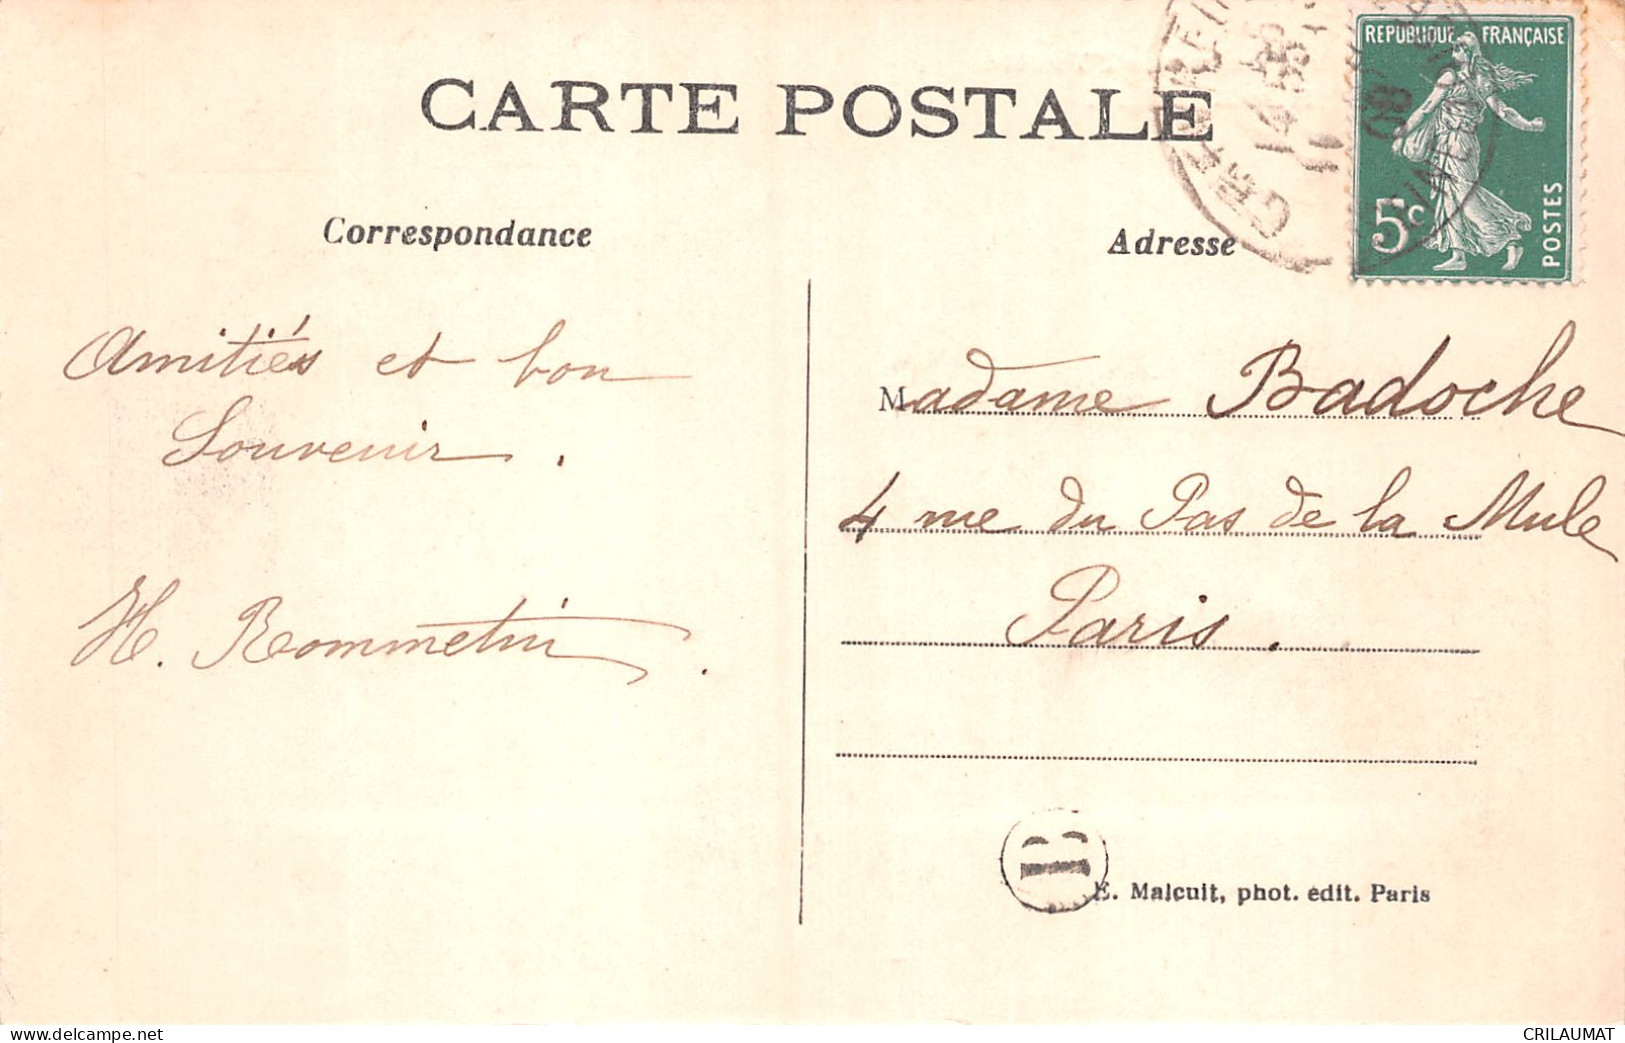 CARTE POSTALE
REPUBLIQUE FRANÇAISE
5c
POSTES
Correspondance
Adresse
Amitiés et bon
Souvenir.
H. Rommetin.
Madame Badoche
4 rue du Pas de la Mule
Paris.
B
E. Malcuit, phot. édit. Paris
https://www.delcampe.net
CRILAUMAT